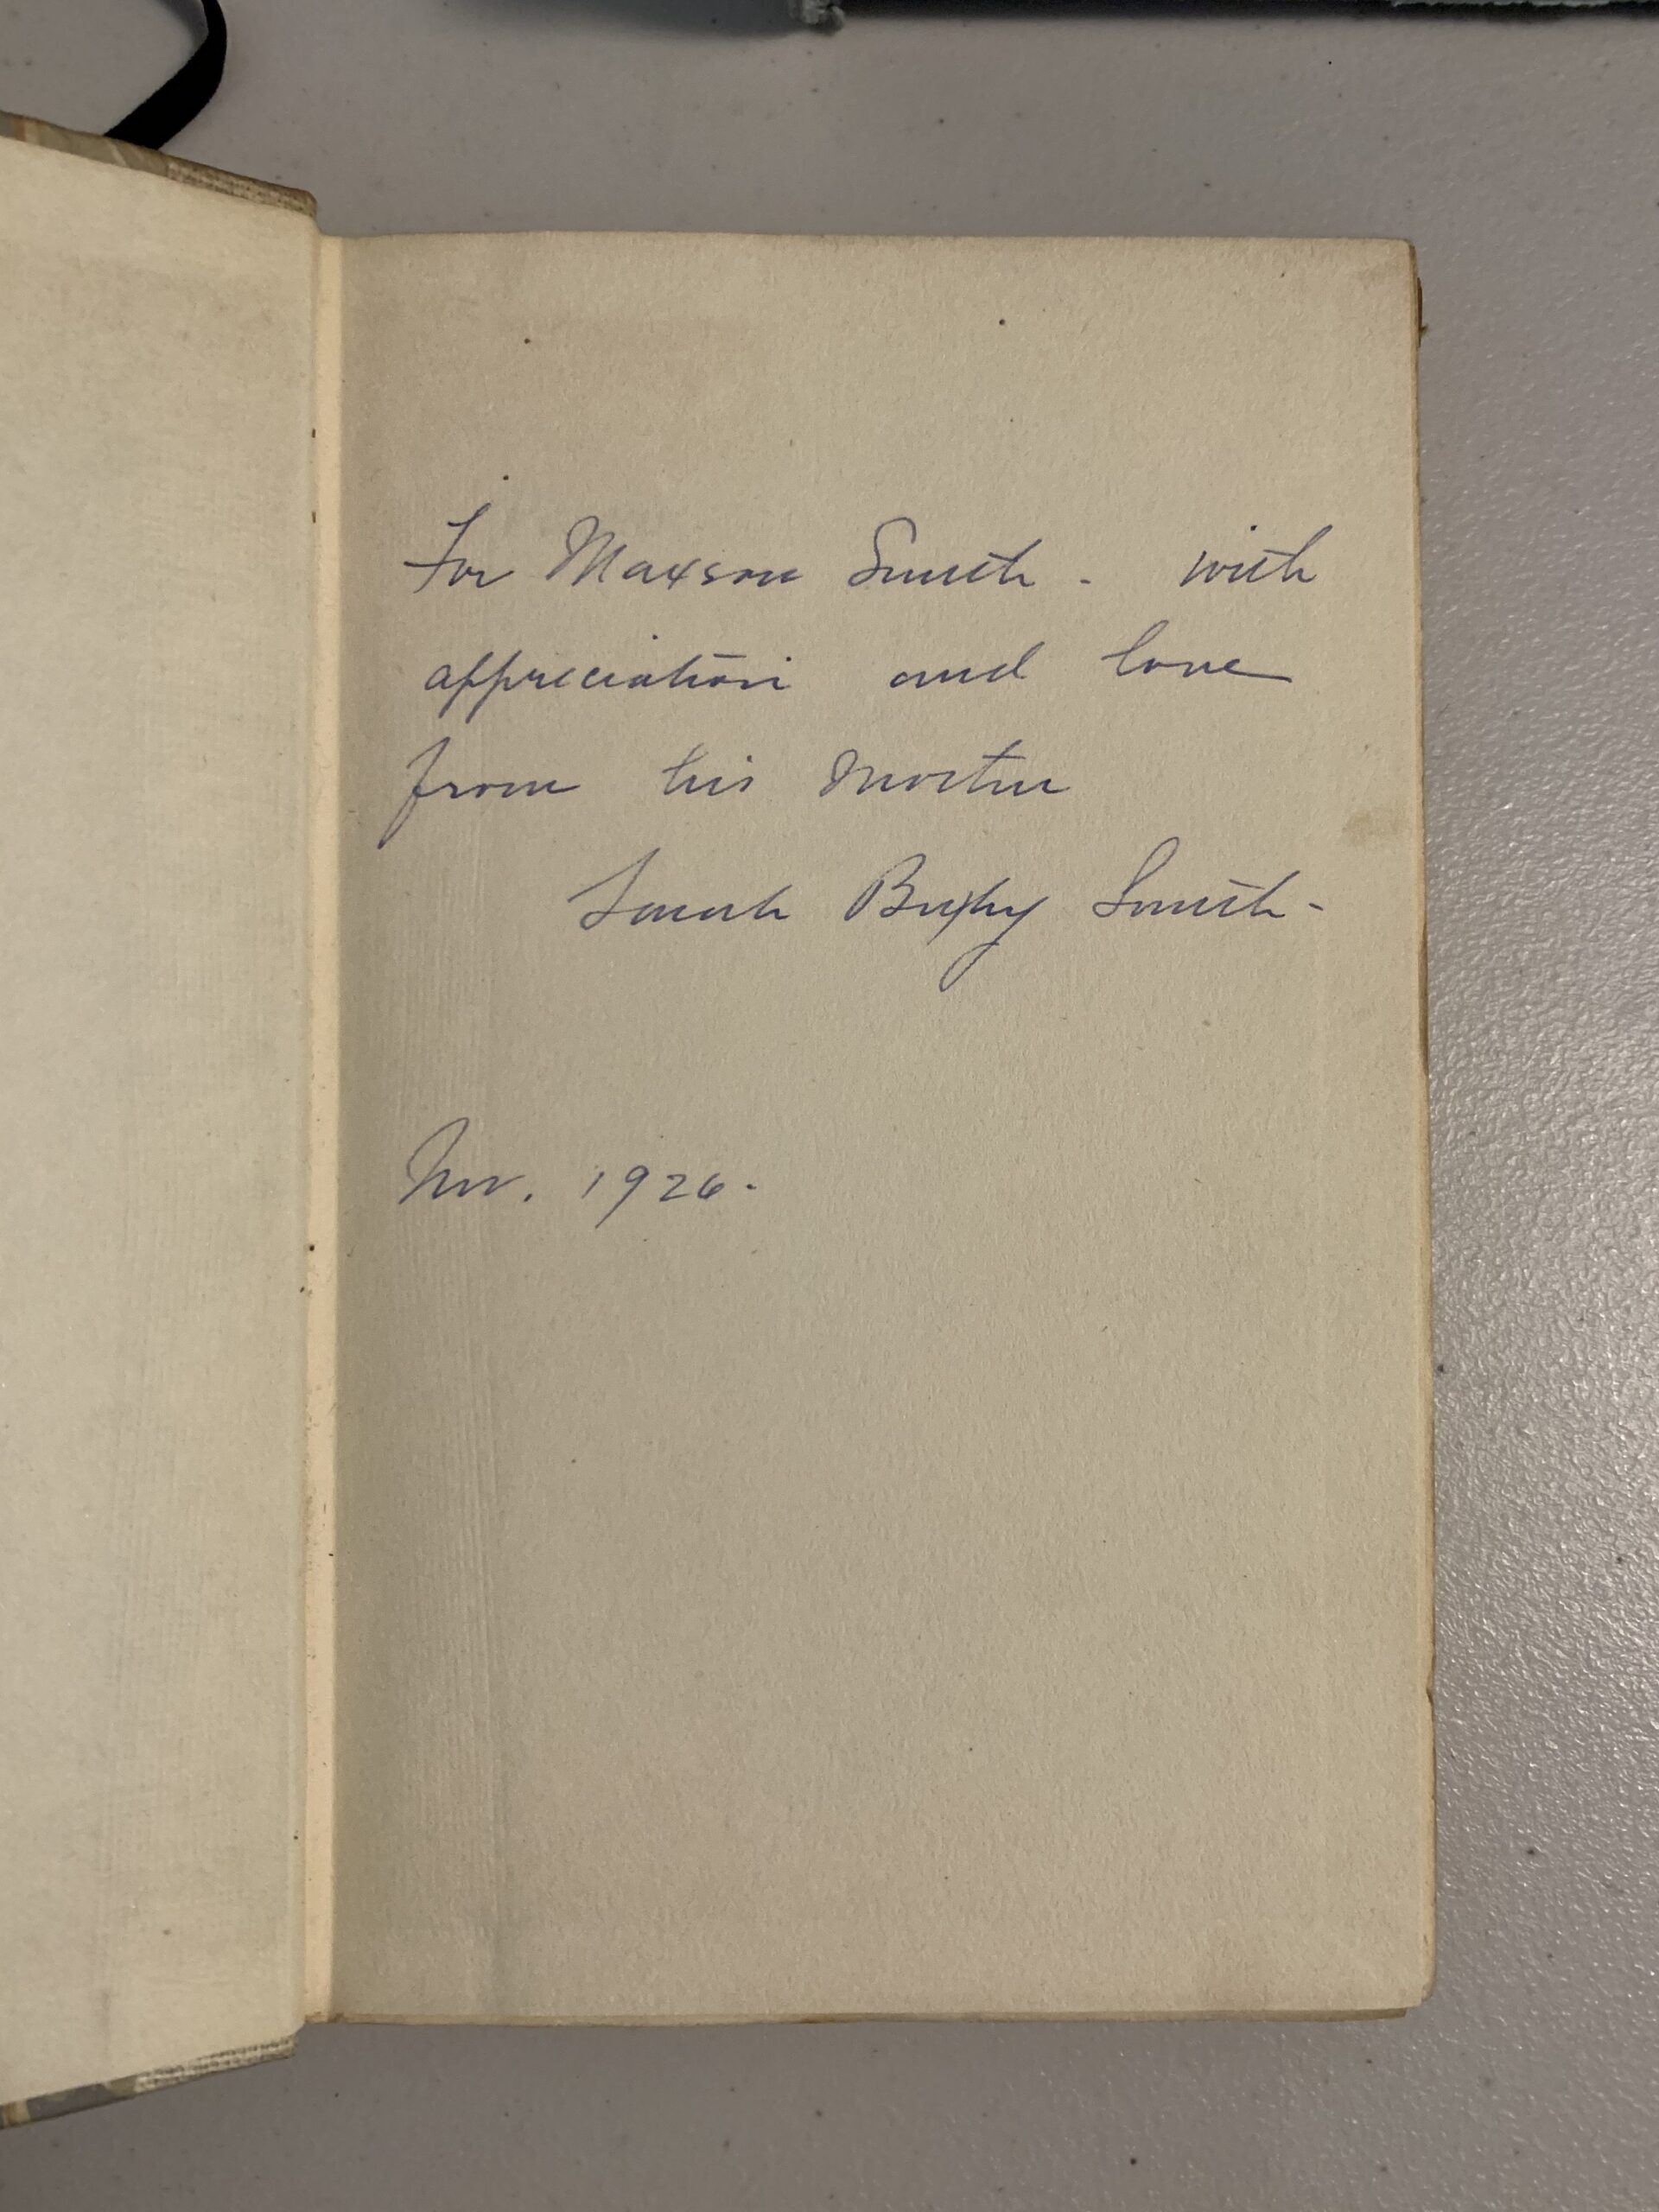 For Maxson Smith - with
appreciation and love
from his Mother
Sarah Bixby Smith -
Nov. 1926.